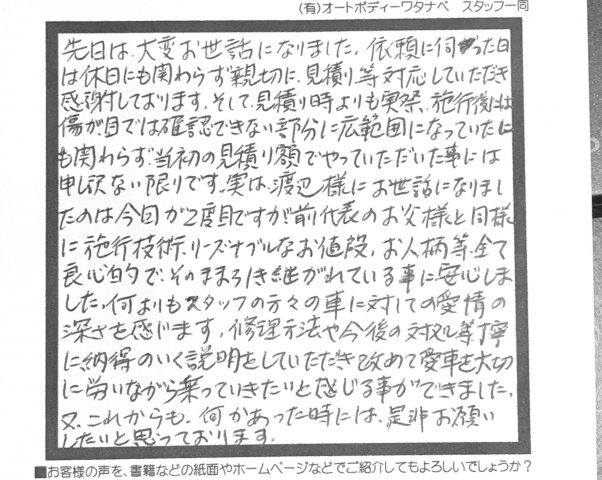 (有)オートボディーワタナベ スタッフ一同
先日は、大変お世話になりました。依頼に伺った日
は休日にも関わらず親切に、見積り等対応していただき
感謝しております。そして、見積り時よりも実際、施行後には
傷が目では確認できない部分に広範囲になっていたに
も関わらず、当初の見積り額でやっていただいた事には
申し訳ない限りです。実は、渡辺様にお世話になりまし
たのは今回が2度目ですが前代表のお父様と同様
に施行技術、リーズナブルなお値段、お人柄等、全て
良心的で、そのまま引き継がれている事に安心しま
した。何よりもスタッフの方々の車に対しての愛情の
深さを感じます。修理方法や今後の対処等、丁寧
に納得のいく説明をしていただき改めて愛車を大切
に労いながら乗っていきたいと感じる事ができました。
又、これからも、何かあった時には、是非お願い
したいと思っております。
■お客様の声を、書籍などの紙面やホームページなどでご紹介してもよろしいでしょうか？